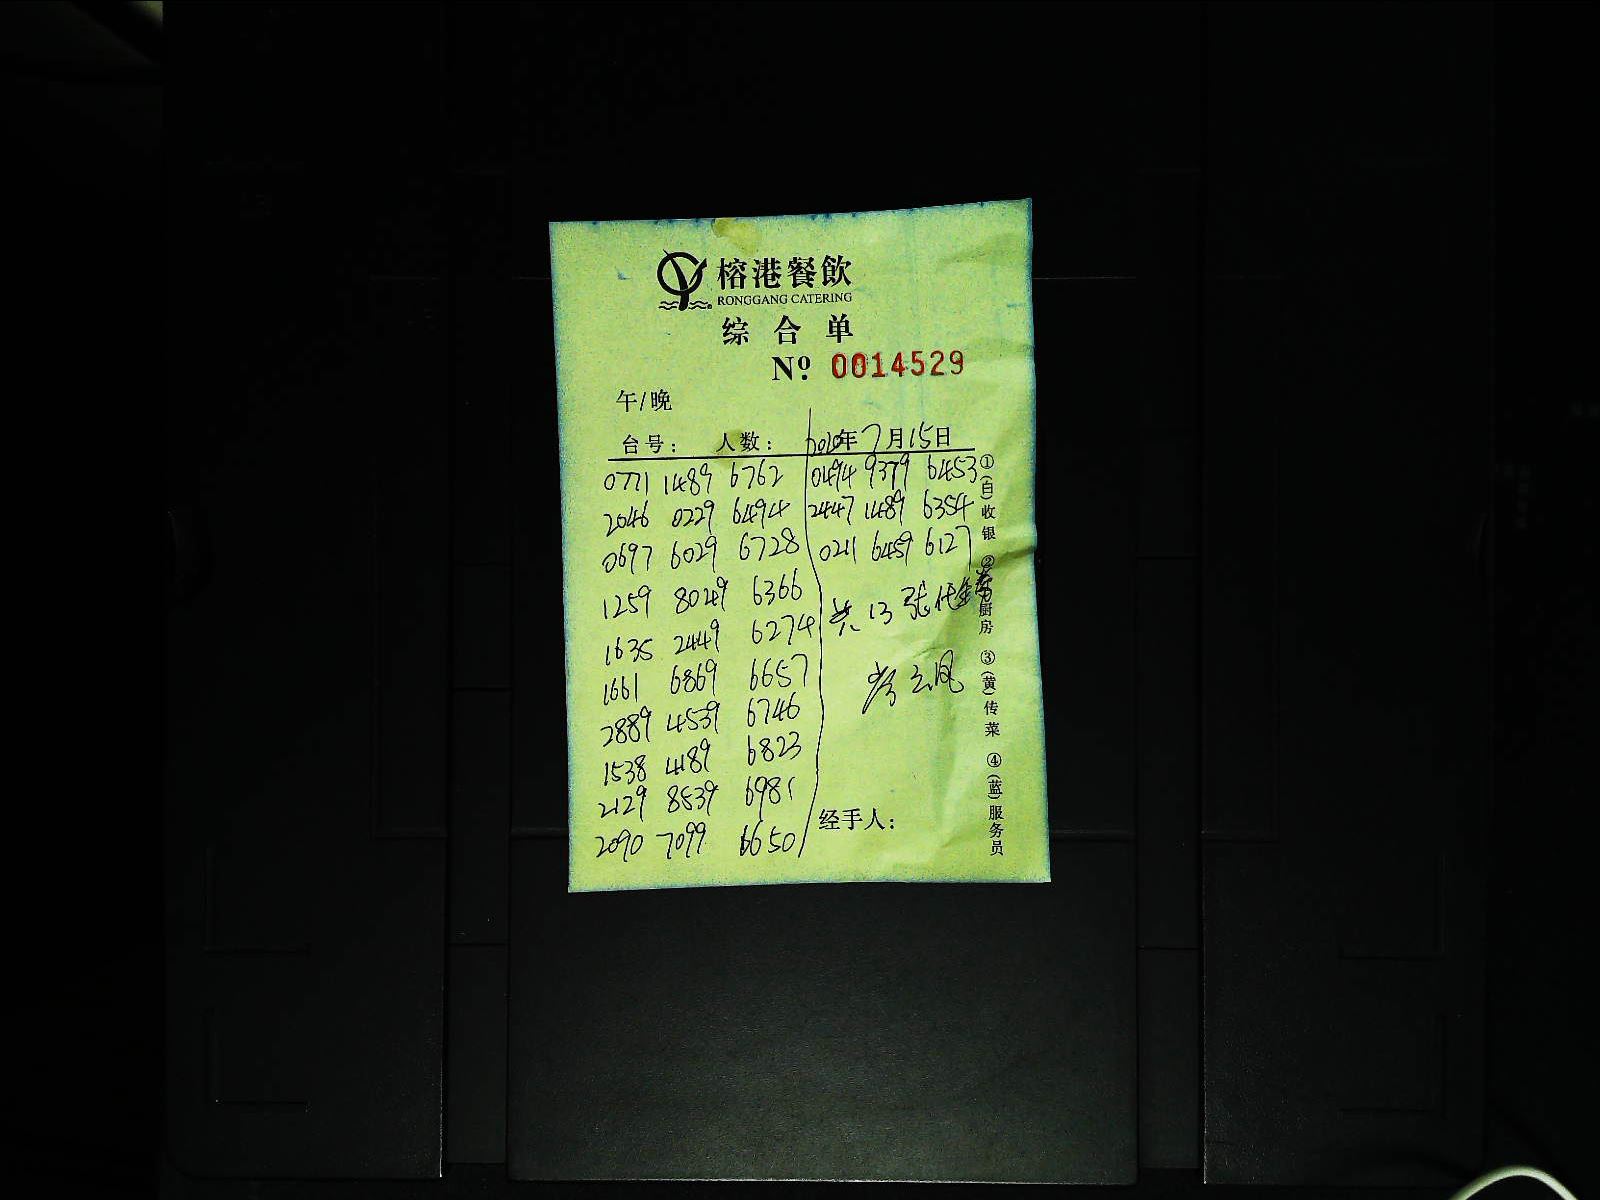 榕港餐飲
RONGGANG CATERING
综合单
Nº 0014529
午/晚
台号: 人数: 2020年7月15日
0771 1489 6762
2046 0229 6494
0697 6029 6728
1259 8049 6366
1635 2449 6274
1661 6869 6657
2889 4539 6746
1538 4189 6823
2129 8539 6981
2090 7099 6650
0494 9379 6453
2447 1489 6354
0211 6459 6127
共13张代金券
云凤
经手人:
①(白)收银 ②厨房 ③(黄)传菜 ④(蓝)服务员